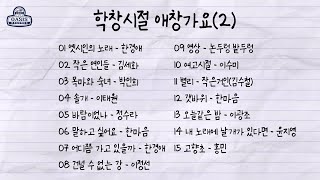 OASIS
학창시절 애창가요(2)
01 옛시인의 노래 - 한경애
02 작은 연인들 - 김세화
03 목마와 숙녀 - 박인희
04 솔개 - 이태원
05 바람이었나 - 정수라
06 말하고 싶어요 - 한마음
07 어디쯤 가고 있을까 - 한경애
08 건널 수 없는 강 - 이정선
09 영상 - 논두렁 밭두렁
10 여고시절 - 이수미
11 별리 - 작은거인(김수철)
12 갯바위 - 한마음
13 오늘같은 밤 - 이광조
14 내 노래에 날개가 있다면 - 윤지영
15 고향초 - 홍민